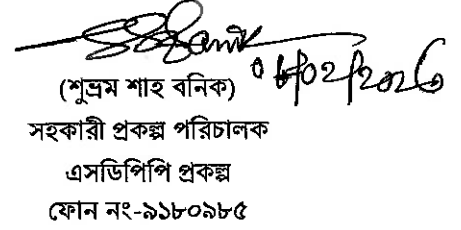 (শুভ্রম শাহ বনিক)
সহকারী প্রকল্প পরিচালক
এসডিপিপি প্রকল্প
ফোন নং-৯১৮০৯৮৫